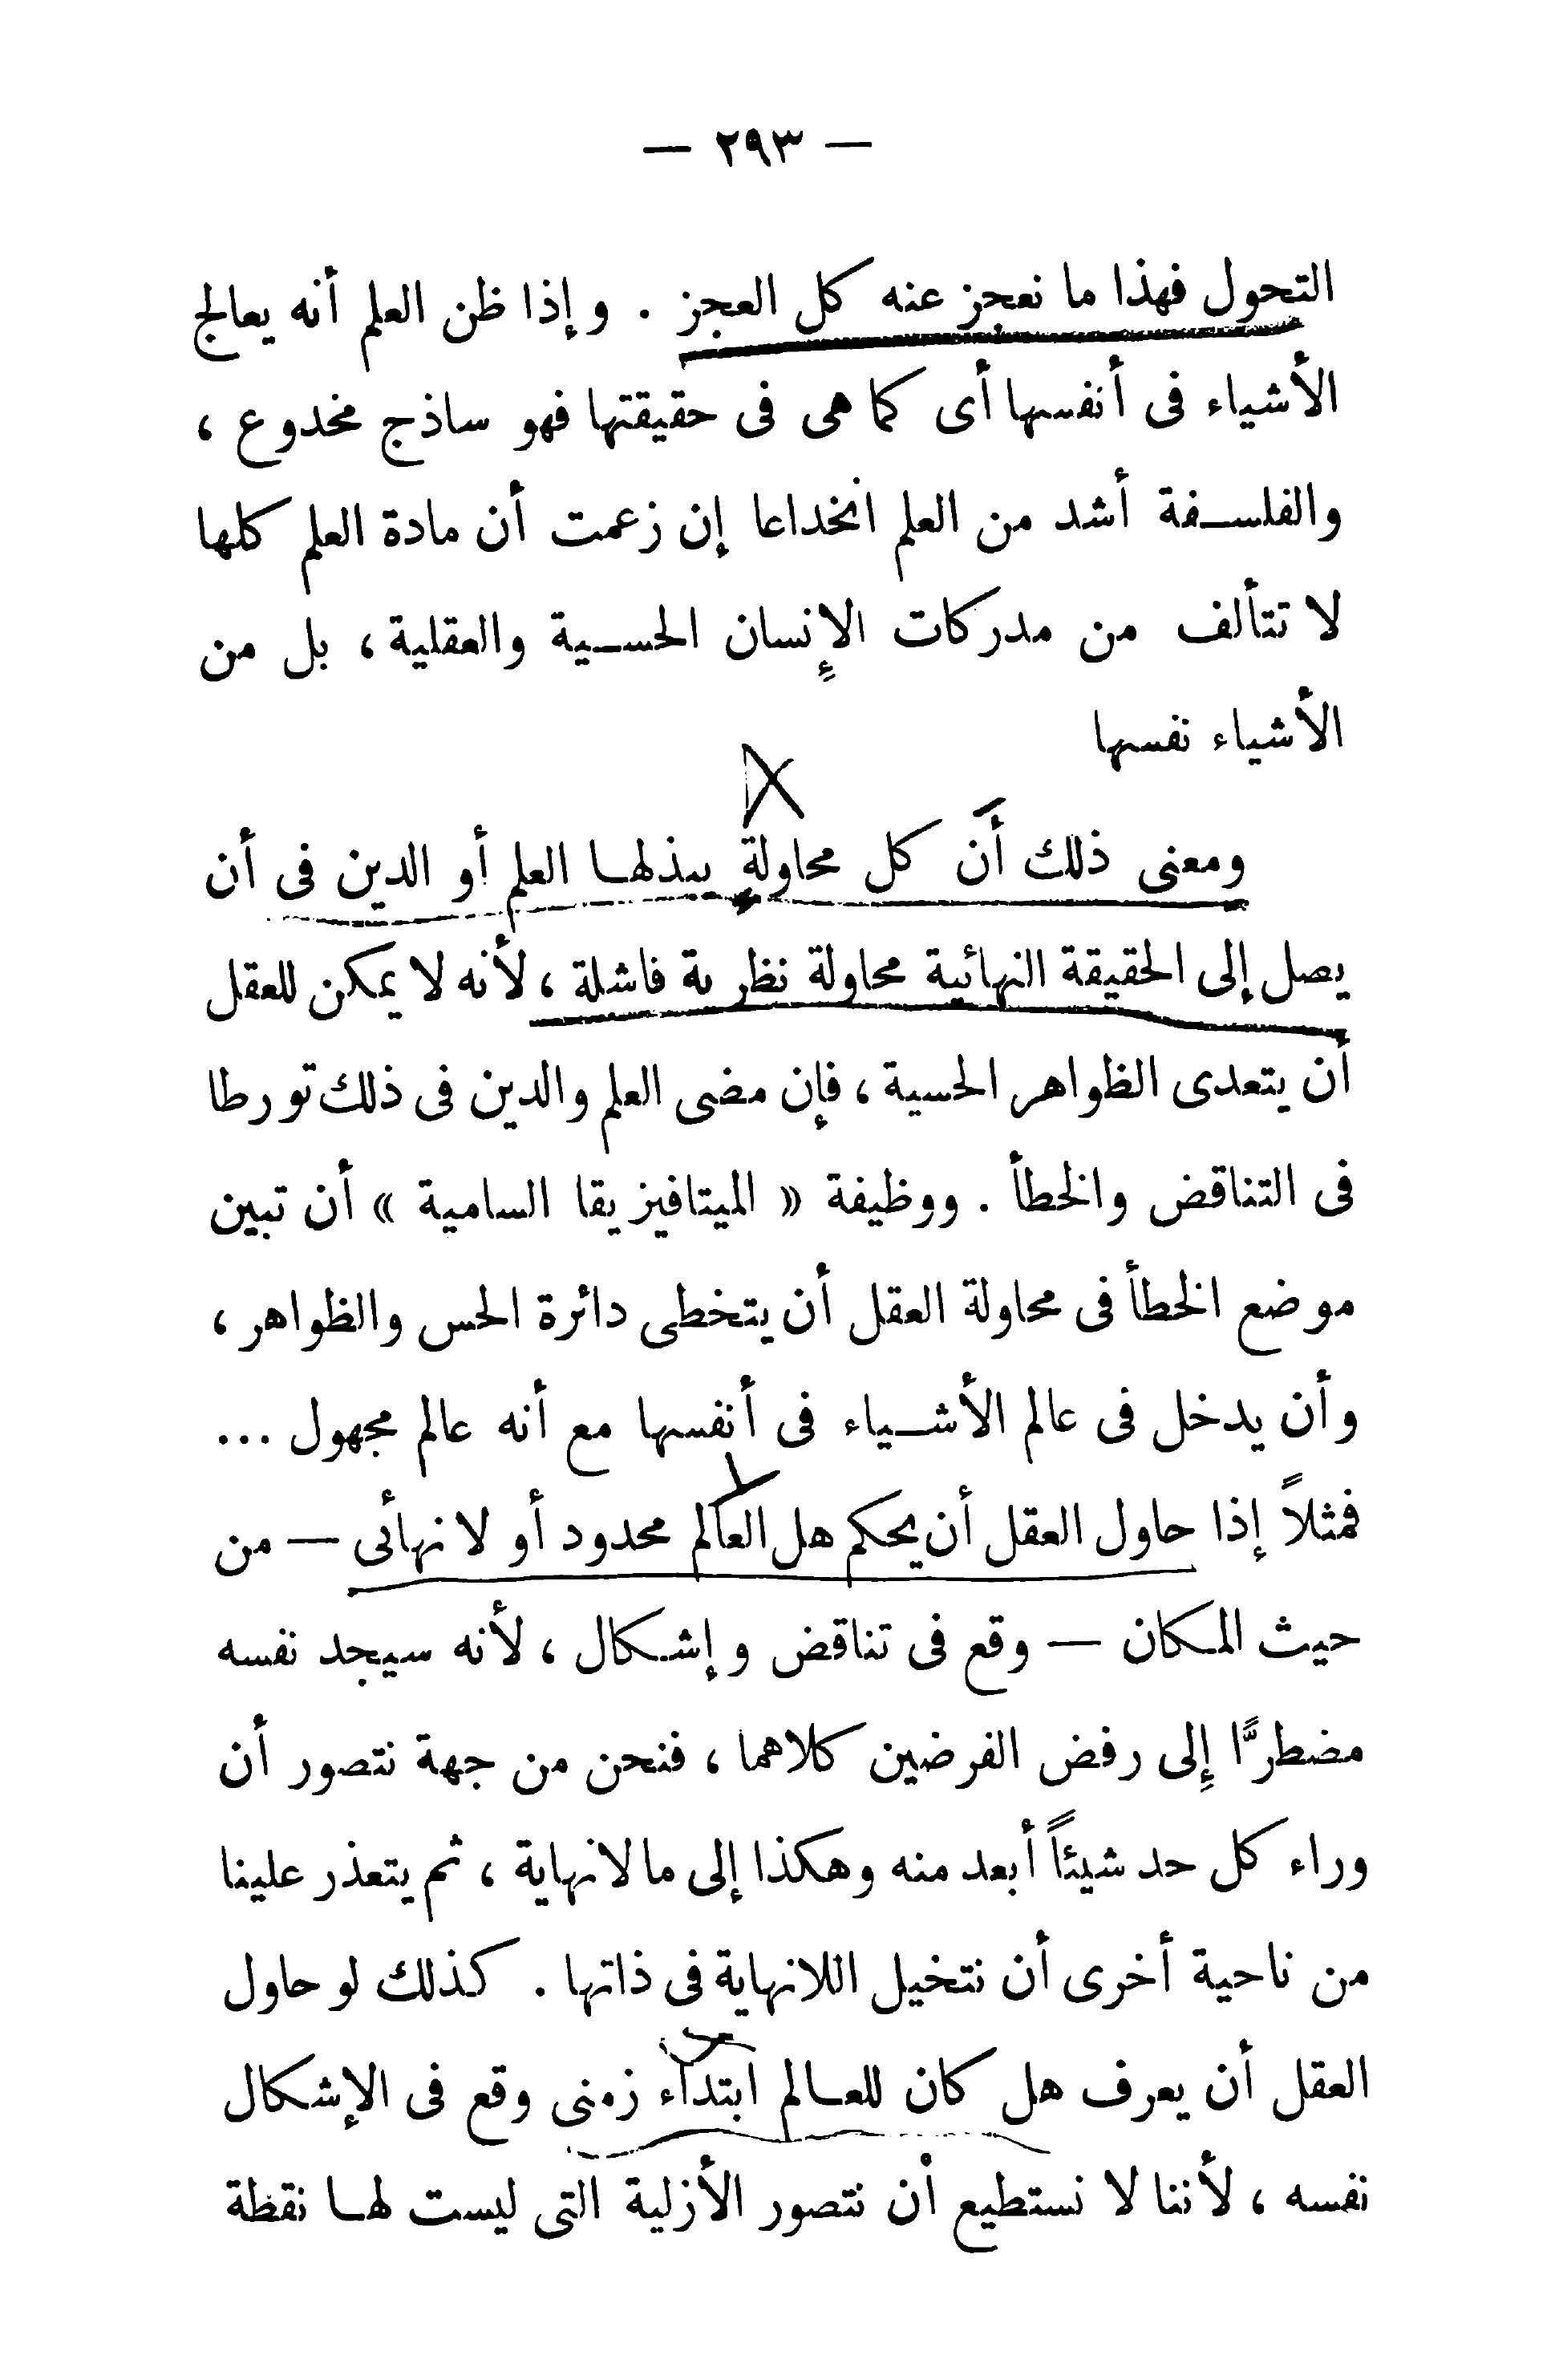 — ٢٩٣ —
التحول فهذا ما نعجز عنه كل العجز . وإذا ظن العلم أنه يعالج
الأشياء فى أنفسها أى كما هى فى حقيقتها فهو ساذج مخدوع ،
والفلسفة أشد من العلم انخداعا إن زعمت أن مادة العلم كلها
لا تتألف من مدركات الإنسان الحسية والعقلية ، بل من
الأشياء نفسها
ومعنى ذلك أن كل محاولة يبذلها العلم أو الدين فى أن
يصل إلى الحقيقة النهائية محاولة نظرية فاشلة ، لأنه لا يمكن للعقل
أن يتعدى الظواهر الحسية ، فإن مضى العلم والدين فى ذلك تورطا
فى التناقض والخطأ . ووظيفة « الميتافيزيقا السامية » أن تبين
موضع الخطأ فى محاولة العقل أن يتخطى دائرة الحس والظواهر ،
وأن يدخل فى عالم الأشياء فى أنفسها مع أنه عالم مجهول ...
فمثلاً إذا حاول العقل أن يحكم هل العالم محدود أو لا نهأئى — من
حيث المكان — وقع فى تناقض وإشكال ، لأنه سيجد نفسه
مضطرًّا إِلى رفض الفرضين كلاهما ، فنحن من جهة نتصور أن
وراء كل حد شيئاً أبعد منه وهكذا إلى مالانهاية ، ثم يتعذر علينا
من ناحية أخرى أن نتخيل اللانهاية فى ذاتها . كذلك لو حاول
العقل أن يعرف هل كان للعالم ابتداء زمنى وقع فى الإشكال
نفسه ، لأننا لا نستطيع أن نتصور الأزلية التى ليست لها نقطة